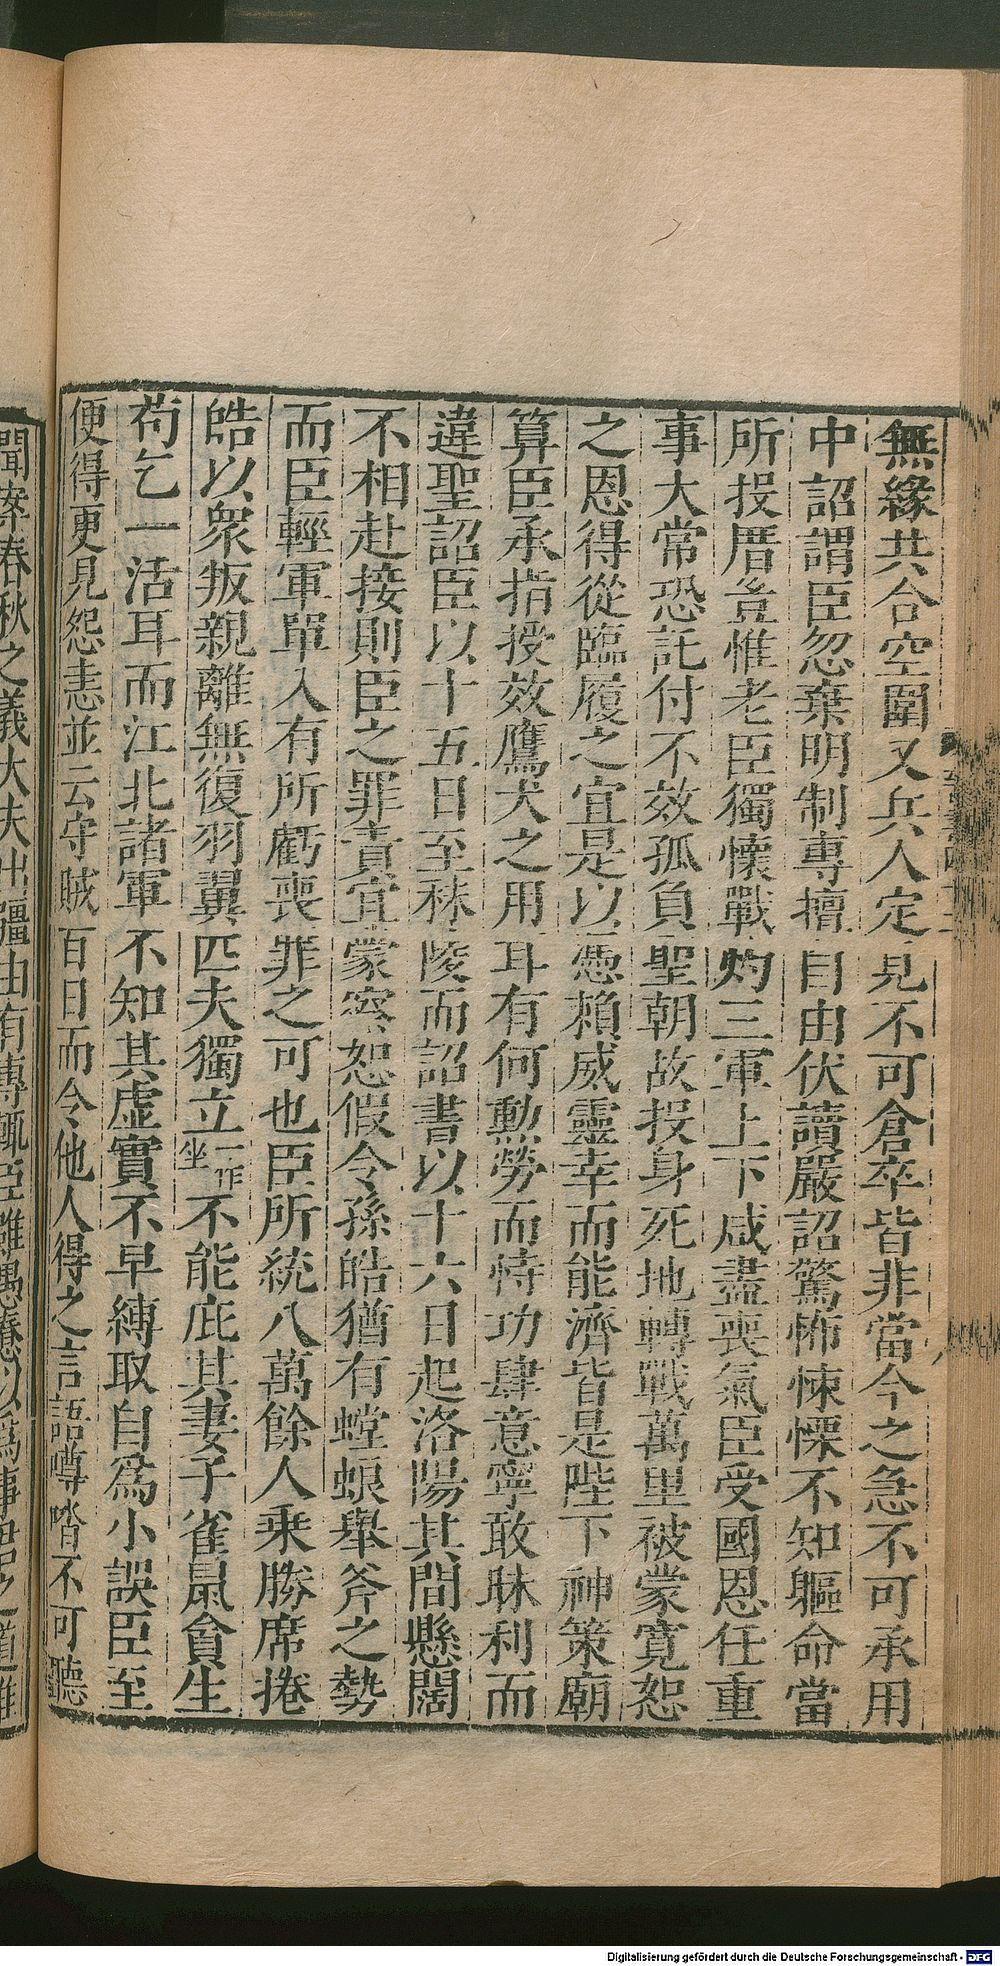 無緣共合空圍又兵人定見不可倉卒皆非當今之急不可承用
中詔謂臣忽棄明制專擅自由伏讀嚴詔驚怖悚慄不知軀命當
所投厝豈惟老臣獨懷戰灼三軍上下咸盡喪氣臣受國恩任重
事大常恐託付不效孤負聖朝故投身死地轉戰萬里被蒙寬恕
之恩得從臨履之宜是以憑賴威靈幸而能濟皆是陛下神策廟
算臣承指授效鷹犬之用耳有何勳勞而恃功肆意寧敢昧利而
違聖詔臣以十五日至秣陵而詔書以十六日起洛陽其間懸闊
不相赴接則臣之罪責宜蒙察恕假令孫皓猶有螳蜋舉斧之勢
而臣輕軍單入有所虧喪罪之可也臣所統八萬餘人乘勝席捲
皓以衆叛親離無復羽翼匹夫獨立一作坐不能庇其妻子雀鼠貪生
苟乞一活耳而江北諸軍不知其虛實不早縛取自爲小誤臣至
便得更見怨恚並云守賊百日而令他人得之言語噂𠴲不可聽
聞案春秋之義大夫出疆由有專輒臣雖愚憃以爲事君之道唯
Digitalisierung gefördert durch die Deutsche Forschungsgemeinschaft - DFG